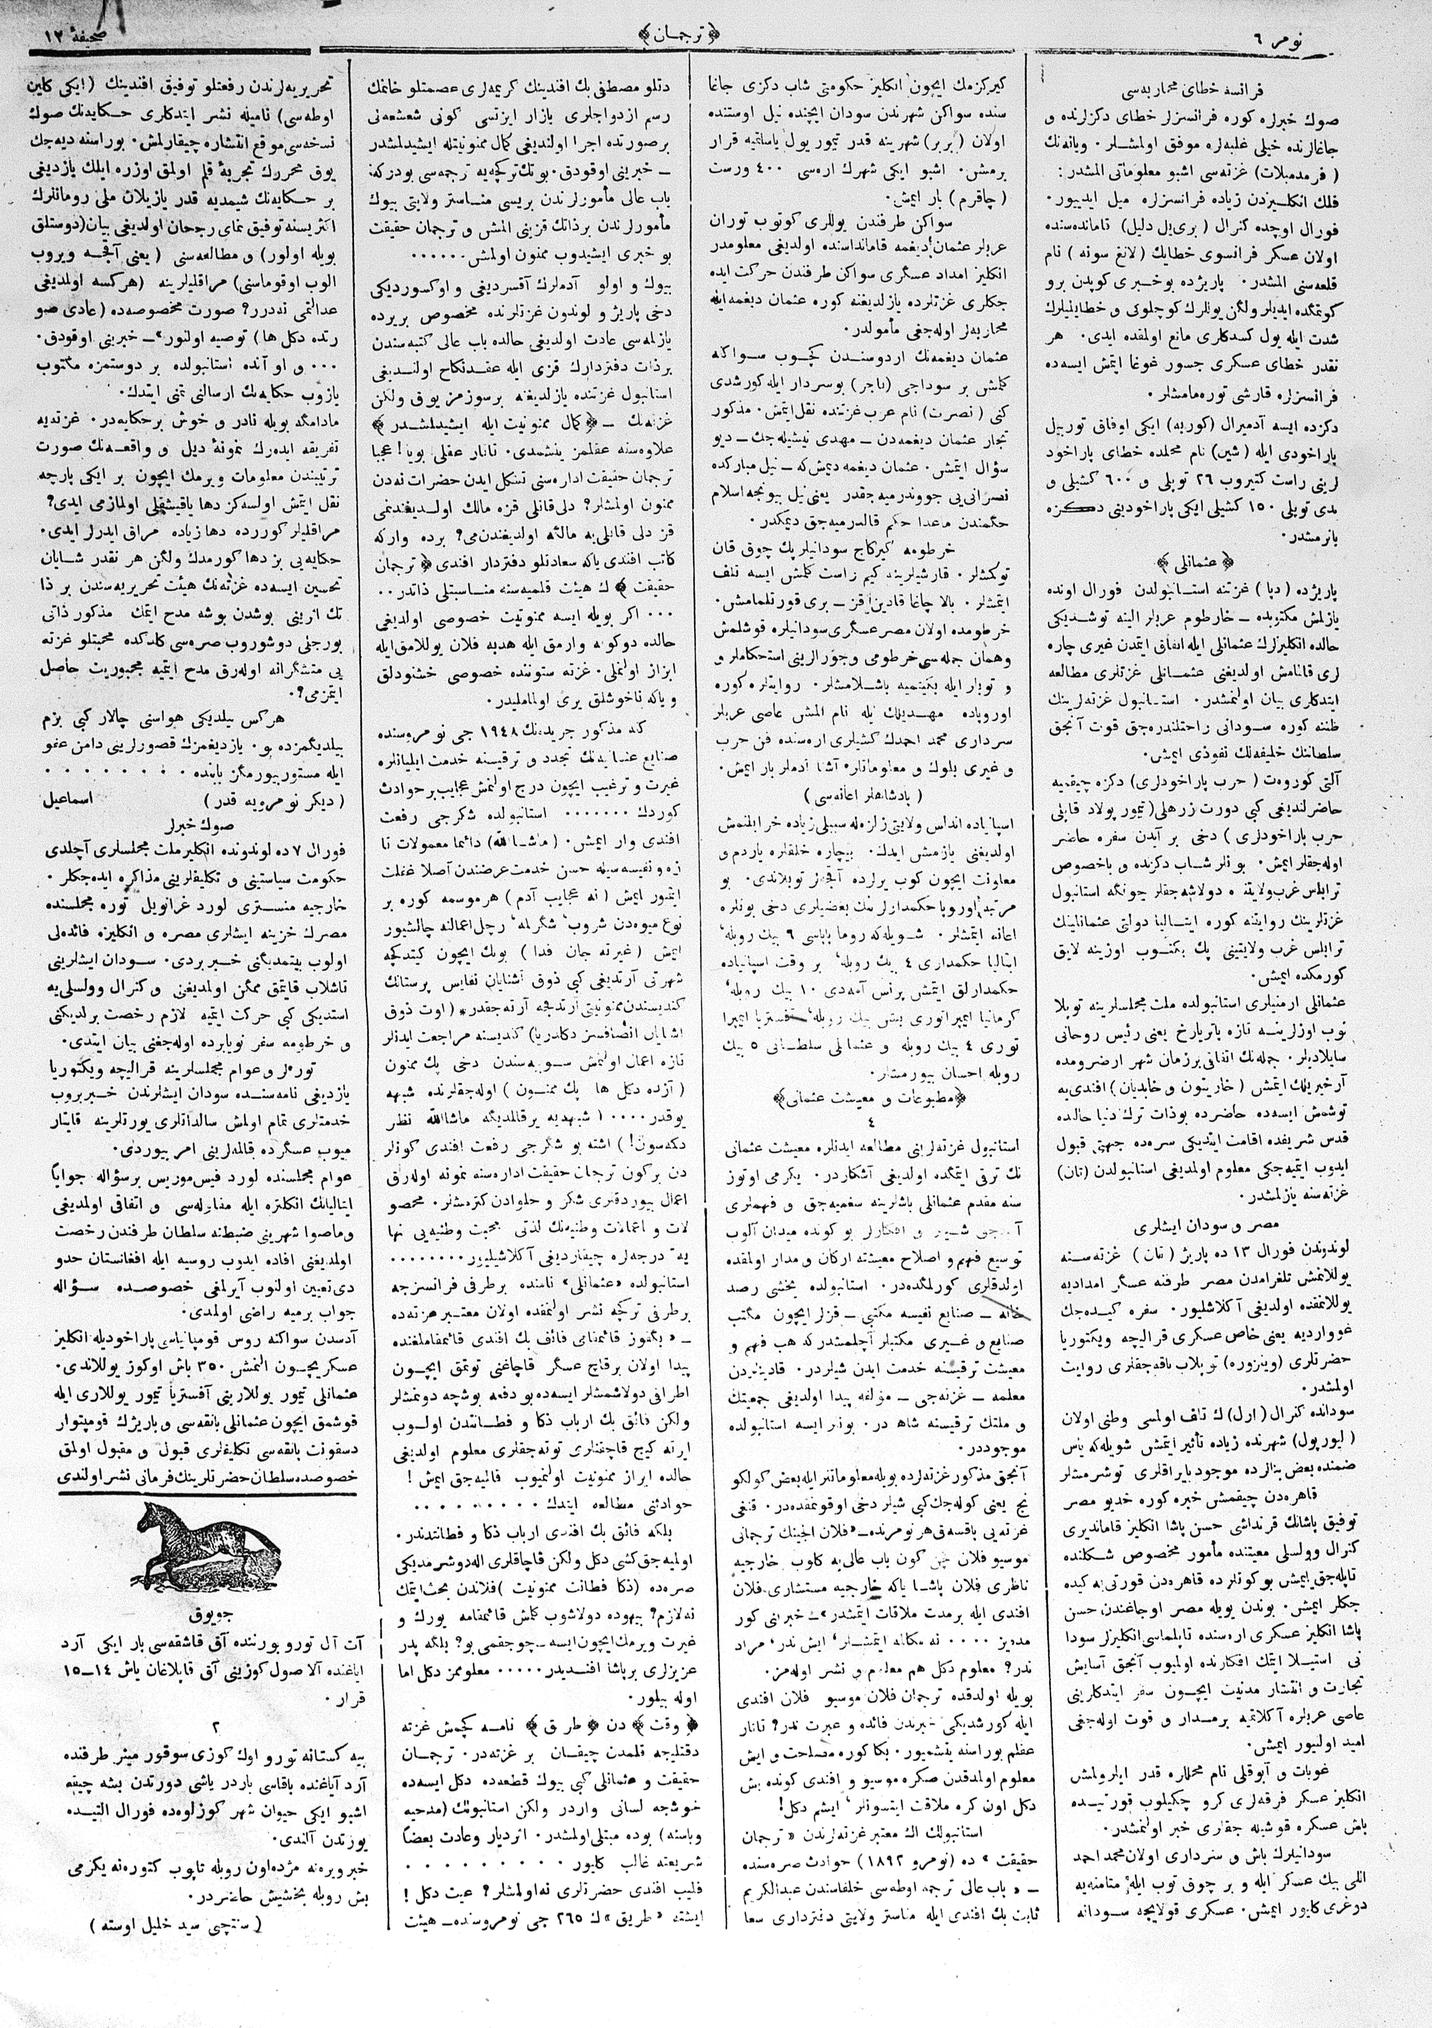 نومر ٦
﴿ ترجمان ﴾
صحیفهٔ ١٢
فرانسه خطای محاربه‌سی
صوك خبرلره كوره فرانسزلر خطای دكزلرنده و
جاغازنده خیلی غلبه‌لره موفق اولمشلر. ویانه‌نك
( فرمدمبلات) غزته‌سی اشبو معلوماتی المشدر :
فلك انكلیزدن زیاده فرانسزلره میل ایدیبور.
فورال اوچده كنرال ( بری‌یل دلیل) نامانده‌سنده
اولان عسكر فرانسوی خطایك ( لانغ سونه ) نام
قلعه‌سنی المشدر. پاریژده بوخبری كوپدن برو
كوتمگده ایدیلر ولگن یوللرك كوچلوتی و خطایلیلرك
شدت ایله یول كسدكاری مانع اولمقده ایدی. هر
نقدر خطای عسكری جسور غوغا ایتمش ایسه‌ده
فرانسزلره قارشی توره‌مامشلر.
دكزده ایسه آدمیرال (كوربه) ایكی اوفاق تورپیل
پاراخودی ایله (شین) نام محلده خطای پاراخود
لرینی راست كتیروب ٢٦ توپلی و ٦٠٠ كشیلی و
یدی توپلی ١٥٠ كشیلی ایكی پاراخودینی دكزه
باترمشدر.
﴿ عثمانلی ﴾
پاریژده ( دبا) غزتنه استانبولدن فورال اونده
یازلمش مكتوبده — خارطوم عربلر الینه توشدیكی
حالده انكلیزلرك عثمانلی ایله اتفاق ایتمدن غیری چاره
لری قالمامش اولدیغنی عثمانلی غزتلری مطالعه
ایتدكاری بیان اولنمشدر. استانبول غزته‌لرینك
ظننه كوره سودانی راحتلندره‌جق قوت آنجق
سلطانك خلیفه‌لك نفوذی ایمش.
آلتی كوروەت ( حرب پاراخودلری) دكزه چیقمیه
حاضرلندیغی كبی دورت زرهلی (تیمور پولاد قابلی
حرب پاراخودلری ) دخی بر آیدن سفره حاضر
اوله‌جقلر ایمش. بونلر شاب دكزنده و باخصوص
ترابلس غرب ولایتنه دولاشه‌جقلر چونگه استانبول
غزتلرینك روایتنه كوره ایتالیا دولتی عثمانلینك
ترابلس غرب ولایتینی پك بكنوب اوزینه لایق
كورمكده ایمش.
عثمانلی ارمنیلری استانبولده ملت مجلسلرینه توپلا
نوب اوزلرینه تازه پاتریارخ یعنی رئیس روحانی
سایلادیلر. جمله‌نك اتفاقی برزمان شهر ارضرومده
آرخیریلك ایتمش ( خاریتون و خابدیان) افندی‌یه
توشمش ایسه‌ده حاضرده بوذات ترك دنیا حالده
قدس شریفده اقامت ایتدیكی سره‌ده جهتی قبول
ایدوب ایتمیه‌جكی معلوم اولمدیغی استانبولدن (تان)
غزته سنه یازلمشدر.
مصر و سودان ایشلری
لوندوندن فورال ١٣ ده پاریژ ( تان ) غزته‌سنه
یوللانمش تلغرامدن مصر طرفنه عسگر امدادیه
یوللانمقده اولدیغی آكلاشلیور. سفره كیده‌جك
غوواردیه یعنی خاص عسكری قرالیچه ویكتوریا
حضرتلری (وینزوره) توپلاب باقه‌جقلری روایت
اولمشدر.
سودانده كنرال (ارل) ك تلف اولمسی وطنی اولان
( لیورپول) شهرنده زیاده تأثیر ایتمش شویله‌كه یاس
ضمنده بعض بنالرده موجود بایراقلری توشرمشلر
قاهره‌دن چیقمش خبره كوره خدیو مصر
توفیق پاشانك قرنداشی حسن پاشا انكلیز قاماندیری
كنرال وولسلی معیتنده مأمور مخصوص شكلنده
تاپله‌جق ایمش بوكونلرده قاهره‌دن قورتی‌یه كیده
جكلر ایمش. بوندن بویله مصر اوجاغندن حسن
پاشا انكلیز عسكری اره‌سنده تاپلماسی انكلیزلر سودا
نی استیلا ایتمك افكارنده اولمیوب آنجق آسایش
تجارت و انتشار مدنیت ایچون سفر ایتدكارینی
عاصی عربلره آكلاتمیه برمدار و قوت اوله‌جغی
امید اولنیور ایمش.
غوبات و آبوقلی نام محللره قدر ایلرولمش
انكلیز عسكر فرقه‌لری كرو چكیلوب قورتیده
باش عسكره قوشیله جقلری خبر اولنمشدر.
سودانیلرك باش و سرداری اولان محمد احمد
اللی بیك عسكر ایله و بر چوق توپ ایله متامنه‌یه
دوغری كلیور ایمش. عسكری قولایچه سودانه
كیركزمك ایچون انكلیز حكومتی شاب دكزی جاغا
سنده سواكن شهرندن سودان ایچنده نیل اوستنده
اولان (بربر) شهرینه قدر تیمور یول یاسلتمیه قرار
برمش. اشبو ایكی شهرك اره‌سی ٤٠٠ ورست
( چاقرم ) بار ایمش.
سواكن طرفندن یوللری كوتوب توران
عربلر عثمان دیغمه قاماندا‌سنده اولدیغی معلومدر
انكلیز امداد عسگری سواكن طرفندن حركت ایده
جكلری غزتلرده یازلدیغنه كوره عثمان دیغمه‌ایله
محاربه‌لر اوله‌جغی مأمولدر.
عثمان دیغمه‌نك اردوسندن كچوب سواكنه
كلمش بر سوداجی (تاجر) بوسردار ایله كورشدی
كنی ( نصرت) نام عرب غزتنده نقل ایتمش. مذكور
تجار عثمان دیغمه‌دن — مهدی نیشیله‌جك — دیو
سؤال ایتمش. عثمان دیغمه دیمش‌كه — نیل مباركده
نصرانی‌یی جووندرمیه‌جقدر یعنی نیل بیونجه اسلام
حكمندن ماعدا حكم قالدرمیه‌جق دیمكدر.
خرطومه كیركاچ سودانیلر پك چوق قان
توكمشلر. قارشیلرینه كیم راست كلمش ایسه تلف
ایتمشلر. بالا چاغا قادین قز — بری قورتلمامش.
خرطومده اولان مصر عسگری سودانیلره قوشلمش
وهمان جمله‌سی خرطومی و جوارلرینی استحكاملر و
و توپلر ایله بكیتمیه باشلامشلر. روایتلره كوره
اوروپاده مهدینك نیله نام المش عاصی عربلر
سرداری محمد احمدك كشیلری اره‌سنده فن حرب
و غیری بلوك و معلوماته آشنا آدملر بار ایمش.
( پادشاهلر اعانه‌سی )
اسپانیاده اندلس ولایتی زلزله سببلی زیاده خرابلنمش
اولدیغنی یازمش ایدك. بیچاره خلقلره یاردم و
معاونت ایچون كوب یرلرده آقچه‌لر توپلاندی. بو
مرتبه اوروپا حكمدارلرینك بعضیلری دخی بونلره
اعانه ایتمشلر. شویله‌كه روما پاپاسی ٦ بیك روبله،
ایتالیا حكمداری ٤ بیك روبله، بر وقت اسپانیاده
حكمدارلق ایتمش پرنس آمه‌دی ١٠ بیك روبله،
كرمانیا ایمپراتوری بش بیك روبله، آفستریا ایمپرا
توری ٤ بیك روبله و عثمانلی سلطانی ٥ بیك
روبله احسان بیورمشلر.
﴿ مطبوعات و معیشت عثمانی ﴾
٤
استانبول غزته‌لرینی مطالعه ایدنلره معیشت عثمانی
نك ترقی ایتمگده اولدیغی آشكاردر. یكرمی اوتوز
سنه مقدم عثمانلی باشلرینه سغمیه‌جق و فهملری
آلمیه‌جق شیلر و افكارلر بو كونده میدان آلوب
توسیع فهم و اصلاح معیشته اركان و مدار اولمقده
اولدقلری كورلمگده‌در. استانبولده بخشی رصد
خانه — صنایع نفیسه مكتبی — قزلر ایچون مكتب
صنایع و غیری مكتبلر آچلمشدركه هب فهم و
معیشت ترقیسنه خدمت ایدن شیلردر. قادینلردن
معلمه — غزته‌جی — مؤلفه پیدا اولدیغی جمعیتك
و ملتك ترقیسنه شاهد در. بونلر ایسه استانبولده
موجوددر.
آنجق مذكور غزته‌لرده بویله معلوماتلر ایله بعض كولكو
نچ یعنی كوله‌جك كبی شیلر دخی اوقونمقده‌در. قنغی
غزته‌یی باقسه‌ق هر نومرنده — «فلان الچینك ترجمانی
موسیو فلان كون باب عالی‌یه كلوب خارجیه
ناظری فلان پاشا یاكه خارجیه مستشاری فلان
افندی ایله برمدت ملاقات ایتمشدر» — خبرینی كور
مدیز .... نه مكالمه ایتمشلر، ایش ندر، مراد
ندر؟ معلوم دكل هم معلوم و نشر اوله‌مز.
بویله اولدقده ترجمان فلان موسیو فلان افندی
ایله كورشدیكی خبرندن فائده و عبرت ندر؟ تاتار
عقلم بوراسنه یتشمیور. بكا كوره مصلحت و ایش
معلوم اولمدقدن صكره موسیو و افندی كونده بش
دكل اون كره ملاقت ایتسونلر، ایشم دكل!
استانبولك الك معتبر غزته‌لرندن «ترجمان
حقیقت» ده (نومرو ١٨٩٢) حوادث صره‌سنده
— «باب عالی ترجمه اوطه‌سی خلفاسندن عبدالكریم
ثابت بك افندی ایله مناستر ولایتی دفترداری سعا
دتلو مصطفی بك افندینك كریمه‌لری عصمتلو خانمك
رسم ازدواجلری بازار ایرتسی كونی شعشعه‌لی
برصورتده اجرا اولندیغی كمال ممنونیتله ایشیدلمشدر
— خبرینی اوقودق. بونك تركچه‌یه ترجمه‌سی بودركه:
باب عالی مأمورلرندن بریسی مناستر ولایتی بیوك
مأمورلرندن برذاتك قزینی المش و ترجمان حقیقت
بو خبری ایشیدوب ممنون اولمش......
بیوك و اولو آدملرك آقسردیغی و اوكسوردیكی
دخی پاریژ و لوندون غزتلرنده مخصوص بریرده
یازلمه‌سی عادت اولدیغی حالده باب عالی كتبه‌سندن
برذات دفتردارك قزی ایله عقدنكاح اولندیغی
استانبول غزتنده یازلدیغنه برسوزمز یوق ولكن
غزته‌نك — ﴿كمال ممنونیت ایله ایشیدلمشدر﴾
علاوه‌سنه عقلمز یتشمدی. تاتار عقلی بویا! عجبا
ترجمان حقیقت اداره‌سنی تشكل ایدن حضرات نه‌دن
ممنون اولمشلر؟ دلی‌قانلی قزه مالك اولدیغندنمی
قز دلی قانلی‌یه مالكه اولدیغندنمی؟ یرده وارركه
كاتب افندی یاكه سعادتلو دفتردار افندی ﴿ ترجمان
حقیقت ﴾ ك هیئت قلمیه‌سنه مناسبتلی ذاتدر..
... اگر بویله ایسه ممنونیت خصوصی اولدیغی
حالده دوكونه وارمق ایله هدیه فلان یوللامق‌ایله
ابراز اولنملی. غزته ستوننده خصوصی خشنودلق
و یاكه ناخوشلق یری اولماملیدر.
كنه مذكور جریده‌نك ١٩٤٨ جی نومروسنده
صنایع عثمانیه‌نك تجدد و ترقیسنه خدمت ایلیانلره
غیرت و ترغیب ایچون درج اولنمش عجایب برحوادث
كوردك....... استانبولده شكرجی رفعت
افندی وار ایمش. ( ماشاالله ) دائما معمولات تا
زه و نفیسه سیله حسن خدمت عرضندن آصلا غفلت
ایتمیور ایمش ( نه عجایب آدم ) هرموسمه كوره بر
نوع میوه‌دن شروب، شكرلمه، رچل اعمالنه چالشیور
ایمش ( غیرته جان فدا ) بونك ایچون كیتدكچه
شهرتی آرتدیغی كبی ذوق آشنایان نفایس پرستانك
كندیسندن ممنونیتی آرتدقجه آرته‌جقدر، ( اوت ذوق
اشنایان انصافسز دكلدریا) كندیسنه مراجعت ایدنلر
تازه اعمال اولنمش شروبه سندن دخی پك ممنون
( آزده دكل ها پك ممنون ) اوله‌جقلرنده شبهه
یوقدر ١٠٠٠٠ شبهه‌یه یر قالمدیكه ماشاالله نظر
دكمه‌سون!) اشته بو شكرجی رفعت افندی كونلر
دن بركون ترجمان حقیقت اداره‌سنه نمونه اوله‌رق
اعمال بیوردقلری شكر و حلوادن كتورمشلر. محصو
لات و اعمالات وطنیه‌نك لذتی محبت وطنیه‌یی نها
یه درجه‌لره چیقاردیغی آكلاشیلیور.........
استانبولده «عثمانلی» نامنده برطرفی فرانسزجه
برطرفی تركچه نشر اولنمقده اولان معتبر غزته‌ده
— «بكقوز قائمقامی فائق بك افندی قائمقاملغنده
پیدا اولان برقاچ عسگر قاچاغنی توتمق ایچون
اطرافی دولاشمشلر ایسه‌ده بو دفعه بوشچه دونمشلر
ولكن فائق بك ارباب ذكا و فطانتدن اولوب
ارته كیج قاچقنلری توته‌جقلری معلوم اولدیغی
حالده ابراز ممنونیت اولنمیوب قالمیه‌جق ایمش!
حوادثنی مطالعه ایتدك .........
بلكه فائق بك افندی ارباب ذكا و فطانتدندر.
اولمیه‌جق كشی دكل ولكن قاچاقلری اله دوشرمدیكی
صره‌ده (ذكا فطانت ممنونیت) فلاندن بحث ایتمك
نه‌لازم؟ بیهوده دولاشوب كلمش قائمقامه یورك و
غیرت ویرمك ایچون ایسه — چوجقمی بو؟ بلكه پدر
عزیزلری برپاشا افندیدر..... معلوممز دكل اما
اوله بیلور.
﴿ وقت ﴾ دن ﴿ طریق ﴾ نامنه كچمش غزته
دقتلیجه قلمدن چیقان بر غزته‌در. ترجمان
حقیقت و عثمانلی كبی بیوك قطعه‌ده دكل ایسه‌ده
خوشجه لسانی واردر ولكن استانبولك (مدحیه
وباسنه) بوده مبتلی اولمشدر. انردیار وعادت بعضاً
شریعته غالب كلیور .........
فلیب افندی حضرتلری نه‌اولمشلر؟ عیب دكل!
ایشته «طریق» ك ٢٦٥ جی نومروسنده — هیئت
تحریریه‌لرندن رفعتلو توفیق افندینك (ایكی كلین
اوطه‌سی) نامیله نشر ایتدكاری حكایه‌نك صوك
نسخه‌سی موقع انتشاره چیقارلمش. بوراسنه دیه‌جك
یوق محررك تجربهٔ قلم اولمق اوزره ایلك یازدیغی
بر حكایه‌نك شیمدیه قدر یازیلان ملی رومانلرك
اكثریسنه توفیق نمای رجحان اولدیغی بیان (دوستلق
بویله اولور) و مطالعه‌سنی ( یعنی آقچه ویروب
الوب اوقوماسنی) مراقلیلرینه (هركسه اولدیغی
عدالتمی نه‌در؟ صورت مخصوصه‌ده (عادی صو
رتده دكل ها) توصیه اولنور» — خبرینی اوقودق.
... و او آنده استانبولده بر دوستمزه مكتوب
یازوب حكایه‌نك ارسالنی تمنی ایتدك.
مادامگه بویله نادر و خوش برحكایه‌در. غزته‌یه
تفریقه ایده‌رك نمونهٔ دیل و واقعه‌نك صورت
ترتیبندن معلومات ویرمك ایچون بر ایكی پارچه
نقل ایتمش اولسه‌كز دها یاقیشقلی اولمازمی ایدی؟
مراقلیلر كوررده دها زیاده مراق ایدرلر ایدی.
حكایه‌یی بز دها كورمدك ولگن هر نقدر شایان
تحسین ایسه‌ده غزته‌نك هیئت تحریریه‌سندن بر ذا
تك اثرینی بوشدن بوشه مدح ایتمك مذكور ذاتی
بورجلی دوشوروب صره‌سی كلدكده محبتلو غزته
یی متشكرانه اوله‌رق مدح ایتمیه مجبوریت حاصل
ایتمزمی؟.
هركس بیلدیكی هواسنی چالار كبی بزم
بیلدیگمزده بو. یازدیغمزك قصورلرینی دامن عفو
ایله مستور بیورمگز بابنده ........
( دیكر نومرویه قدر )
اسماعیل
صوك خبرلر
فورال ٧ ده لوندونده انكلیز ملت مجلسلری آچلدی
حكومت سیاستینی و تكلیفلرینی مذاكره ایده‌جكلر.
خارجیه منستری لورد غرانویل توره مجلسنده
مصرك خزینه ایشلری مصره و انكلیزه فائده‌لی
اولوب بیتمدیگنی خبر بردی. سودان ایشلرینی
تاشلاب قایتمق ممگن اولمدیغنی و كنرال وولسلی‌یه
استدیكی كبی حركت ایتمیه لازم رخصت برلدیكنی
و خرطومه سفر نویابرده اوله‌جغنی بیان ایتدی.
توره‌لر و عوام مجلسلرینه قرالیچه ویكتوریا
یازدیغی نامه‌سنده سودان ایشلرندن خبر بروب
خدمتلری تمام اولمش سالداتلری یورتلرینه قایتار
میوب عسگرده قالمه‌لرینی امر بیوردی.
عوام مجلسنده لورد فیس‌موریس برسؤاله جواباً
ایتالیانك انكلتره ایله مقاوله‌سی و اتفاقی اولمدیغی
وماصوا شهرینی ضبطنه سلطان طرفندن رخصت
اولمدیغنی افاده ایدوب روسیه ایله افغانستان حدو
دی تعیین اولنوب آیرلمغی خصوصده سؤاله
جواب برمیه راضی اولمدی.
آدسدن سواكنه روس قومپانیاسی پاراخودیله انكلیز
عسكر ایچون المش ٣٥٠ باش اوكوز یوللاندی.
عثمانلی تیمور یوللارینی آفستریا تیمور یوللاری ایله
قوشمق ایچون عثمانلی بانقه‌سی و پاریژك قومپتوار
دسقونت بانقه‌سی تكلیفلری قبول و مقبول اولمق
خصوصده سلطان حضرتلرینك فرمانی نشر اولندی
جویوق
آت آل تورو بورننده آق قاشقه‌سی بار ایكی آرد
ایاغنده آلا صول كوزینی آق قاپلاغان یاش ١٤—١٥
قرار.
٢
بیه كستانه تورو اوك كوزی سوقور میتر طرفنده
آرد آیاغنده یاقاسی باردر یاشی دورتدن بشه چیقیه
اشبو ایكی حیوان شهر كوزلوه‌ده فورال التیده
یورتدن آلندی.
خبر ویرنه مژده اون روبله تاپوب كتورنه یكرمی
بش روبله بخشیش حاضردر.
( ستچی سید خلیل اوسته )